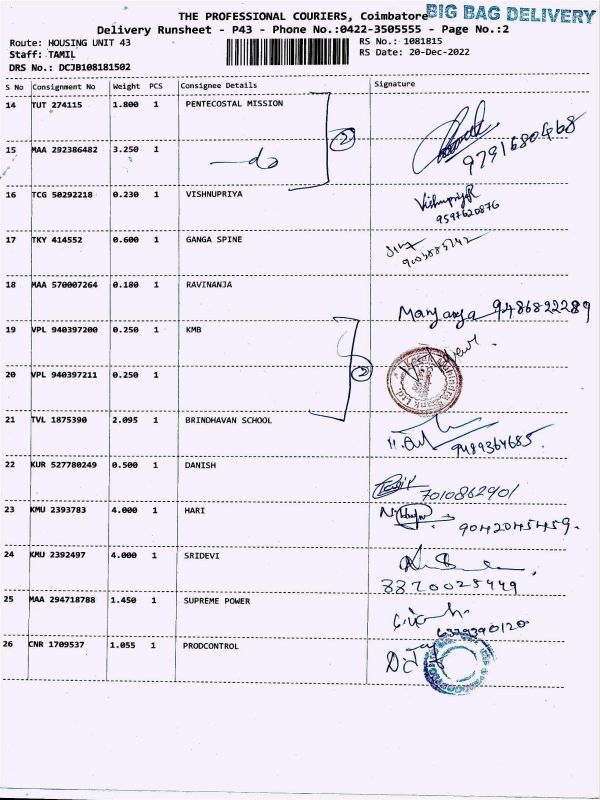 BIG BAG DELIVERY
THE PROFESSIONAL COURIERS, Coimbatore
Delivery Runsheet - P43 - Phone No.:0422-3505555 - Page No.:2
Route: HOUSING UNIT 43 RS No.: 1081815
Staff: TAMIL RS Date: 20-Dec-2022
DRS No.: DCJB108181502
S No Consignment No Weight PCS Consignee Details Signature
14 TUT 274115 1.800 1 PENTECOSTAL MISSION
2
15 MAA 292386482 3.250 1 do 9791680468
16 TCG 50292218 0.230 1 VISHNUPRIYA Vishnupriya
9597620876
17 TKY 414552 0.600 1 GANGA SPINE
18 MAA 570007264 0.180 1 RAVINANJA
9486822289
19 VPL 940397200 0.250 1 KMB
2
20 VPL 940397211 0.250 1
21 TVL 1875390 2.095 1 BRINDHAVAN SCHOOL
9489364685
22 KUR 527780249 0.500 1 DANISH
7010862901
23 KMU 2393783 4.000 1 HARI
9042045459
24 KMU 2392497 4.000 1 SRIDEVI
3870025449
25 MAA 294718788 1.450 1 SUPREME POWER
26 CNR 1709537 1.055 1 PRODCONTROL